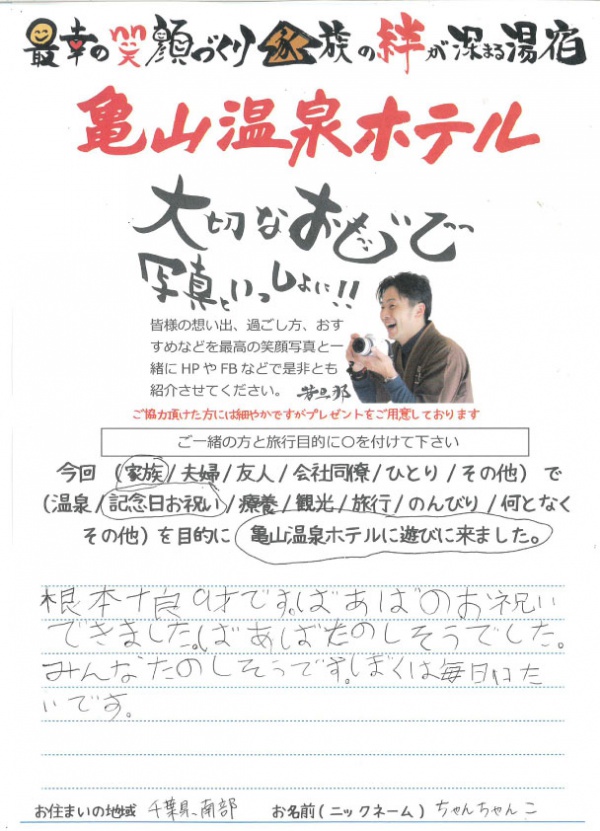 最幸の笑顔づくり家族の絆が深まる湯宿
亀山温泉ホテル
大切なおもいで
写真といっしょに!!
皆様の想い出、過ごし方、おす
すめなどを最高の笑顔写真と一
緒にHPやFBなどで是非とも
紹介させてください。 若旦那
ご協力頂けた方には細やかですがプレゼントをご用意しております
ご一緒の方と旅行目的に○を付けて下さい
今回（家族/夫婦/友人/会社同僚/ひとり/その他）で
（温泉/記念日お祝い/療養/観光/旅行/のんびり/何となく
その他）を目的に 亀山温泉ホテルに遊びに来ました。
根本 良 9才です。ばあばのお祝い
できました。ばあばたのしそうでした。
みんなたのしそうです。ぼくは毎日
いです。
お住まいの地域 千葉県、南部 お名前（ニックネーム） ちゃんちゃんこ